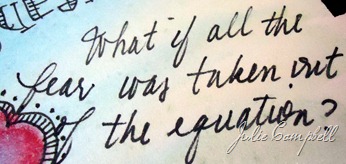 What if all the
fear was taken out
of the equation?
Julie Campbell